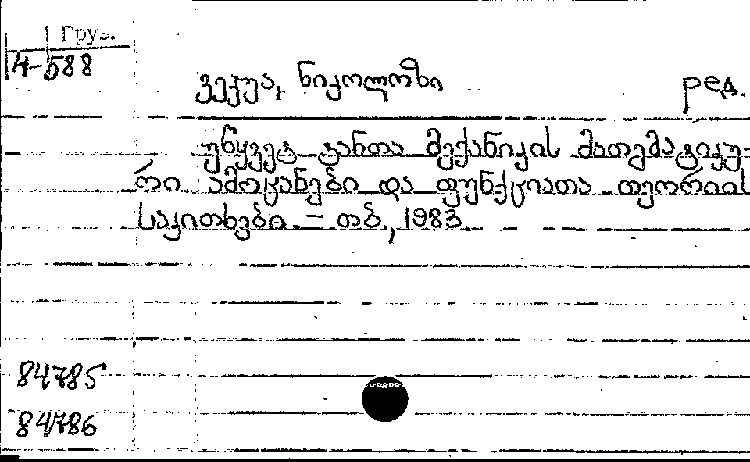 Груз.
4-588
ვეკუა, ნიკოლოზი ред.
უწყვეტ ტანთა მექანიკის მათემატიკუ-
რი ამოცანები და ფუნქციათა თეორიის
საკითხები. – თბ., 1983
84785
84786